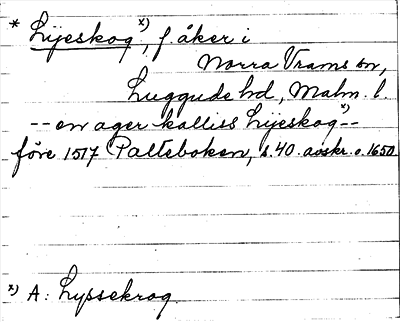 * Lijeskog x), f. åker i
Norra Vrams sn,
Luggude hd, Malm. l.
-- en ager kalliss Lijeskog x)--
före 1517 Palteboken, s. 40. avskr. o. 1650.
x) A: Lyssekrog